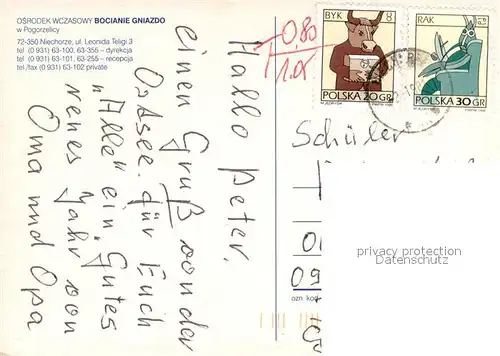 OŚRODEK WCZASOWY BOCIANIE GNIAZDO
w Pogorzelicy
72-350 Niechorze, ul. Leonida Teligi 3
tel (0 931) 63-100, 63-355 – dyrekcja
tel (0 931) 63-101, 63-255 – recepcja
tel./fax (0 931) 63-102 private
Hallo Peter.
einen Gruß von der
Ostsee. für Euch
„Alle" ein „Gutes
neues Jahr von
Oma und Opa
0,80
1.05
BYK
POLSKA 20 GR
RAK
POLSKA 30 GR
Schüler
09
ozn. kod
privacy protection
Datenschutz